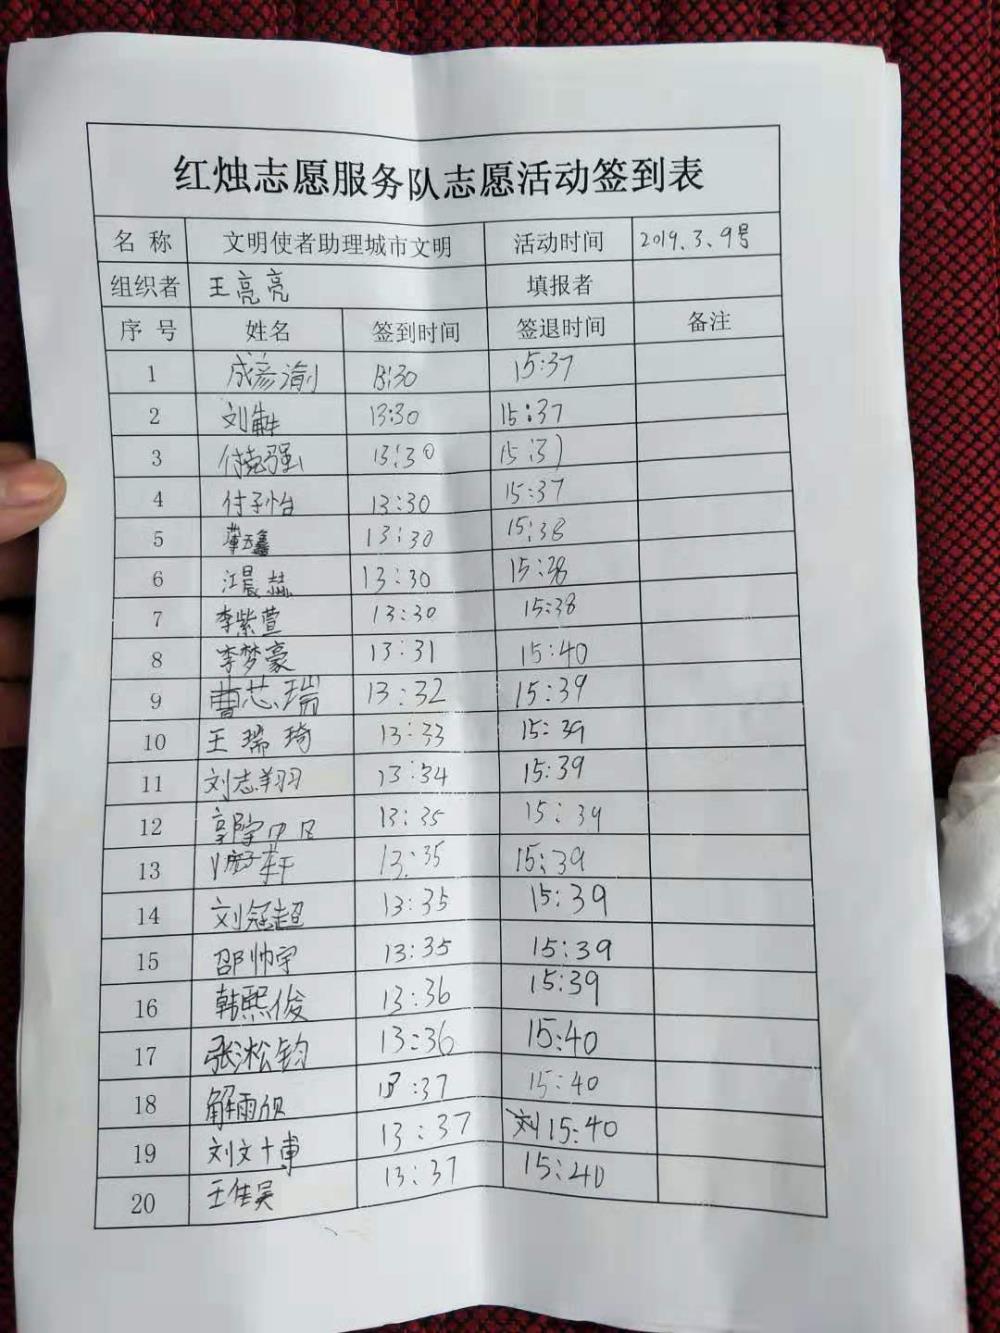 红烛志愿服务队志愿活动签到表
名 称 文明使者助理城市文明 活动时间 2019.3.9号
组织者 王亮亮 填报者
序 号 姓名 签到时间 签退时间 备注
1 成彦渝 13:30 15:37
2 刘犇 13:30 15:37
3 付克强 13:30 15:37
4 付子怡 13:30 15:37
5 13:30 15:38
6 江晨赫 13:30 15:38
7 李紫萱 13:30 15:38
8 李梦豪 13:31 15:40
9 曹芯瑞 13:32 15:39
10 王瑞琦 13:33 15:39
11 刘志翔 13:34 15:39
12 13:35 15:39
13 13:35 15:39
14 刘冠超 13:35 15:39
15 邵帅宇 13:35 15:39
16 韩熙俊 13:36 15:39
17 张淞钧 13:36 15:40
18 解雨 13:37 15:40
19 刘文博 13:37 刘 15:40
20 王佳昊 13:37 15:40